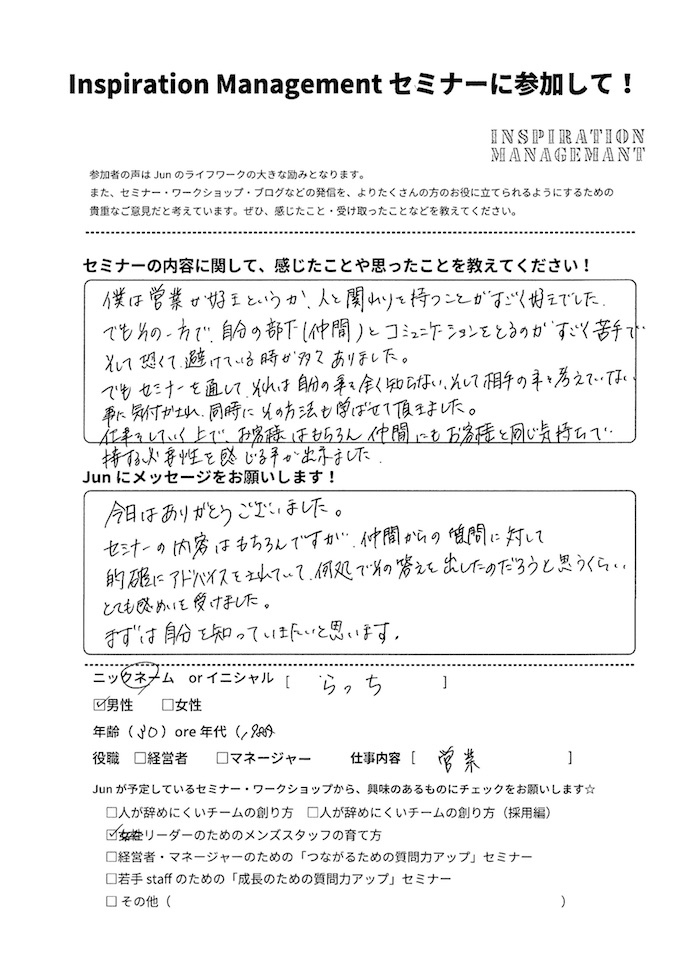 Inspiration Management セミナーに参加して！
INSPIRATION
MANAGEMANT
参加者の声は Jun のライフワークの大きな励みとなります。
また、セミナー・ワークショップ・ブログなどの発信を、よりたくさんの方のお役に立てられるようにするための
貴重なご意見だと考えています。ぜひ、感じたこと・受け取ったことなどを教えてください。
セミナーの内容に関して、感じたことや思ったことを教えてください！
僕は営業が好きというか、人と関わりを持つことがすごく好きでした。
でもその一方で、自分の部下(仲間)とコミュニケーションをとるのがすごく苦手で
そして恐くて、避けている時が多々ありました。
でもセミナーを通して、それは自分の事を全く知らない、そして相手の事を考えていない
事に気付かされ、同時にその方法も学ばせて頂きました。
仕事をしていく上で、お客様はもちろん仲間にもお客様と同じ気持ちで
接する必要性を感じる事が出来ました。
Jun にメッセージをお願いします！
今日はありがとうございました。
セミナーの内容はもちろんですが、仲間からの質問に対して
的確にアドバイスをされていて、何処でその答えを出したのだろうと思うくらい
とても感めいを受けました。
まずは自分を知っていきたいと思います。
ニックネーム or イニシャル [ らっち ]
☑男性 □女性
年齢（30）ore 年代（
役職 □経営者 □マネージャー 仕事内容 [ 営業 ]
Jun が予定しているセミナー・ワークショップから、興味のあるものにチェックをお願いします☆
□人が辞めにくいチームの創り方 □人が辞めにくいチームの創り方（採用編）
☑女性リーダーのためのメンズスタッフの育て方
□経営者・マネージャーのための「つながるための質問力アップ」セミナー
□若手 staff のための「成長のための質問力アップ」セミナー
□ その他（ ）